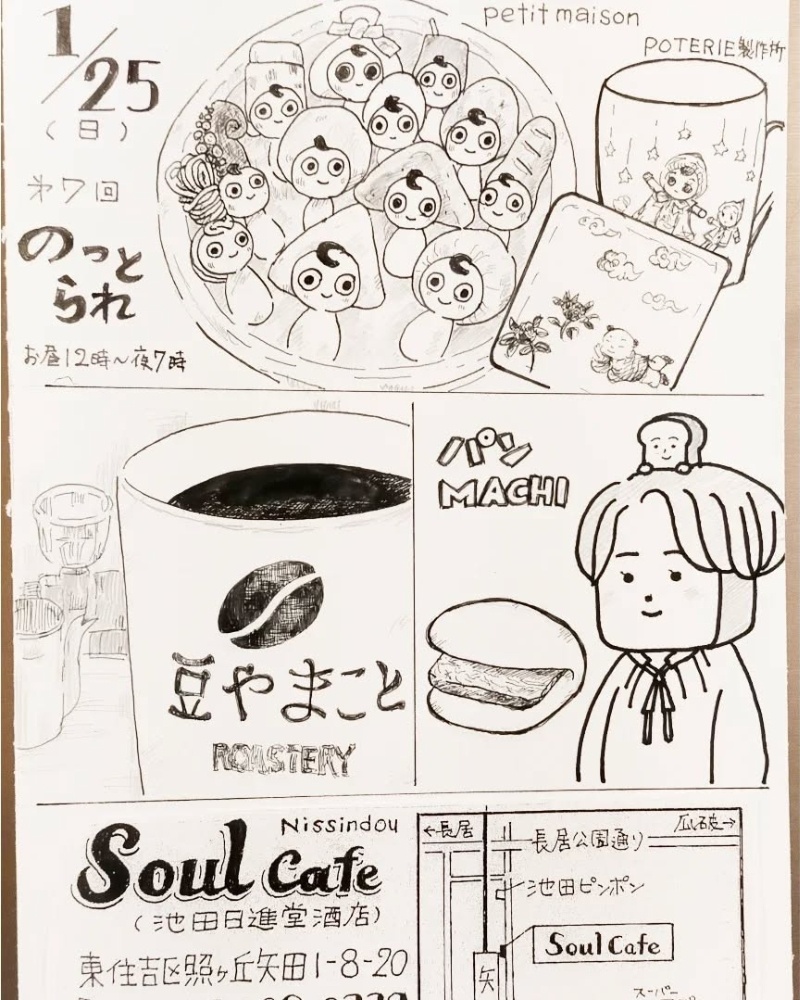 1/25
(日)
オ7回
のっと
られ
お昼12時〜夜7時
petit maison
POTERIE製作所
豆やまこと
ROASTERY
パン
MACHI
Nissindou
Soul Cafe
(池田日進堂酒店)
東住吉区照ヶ丘矢田1-8-20
←長居
瓜破→
長居公園通り
池田ピンポン
Soul Cafe
矢
スーパー